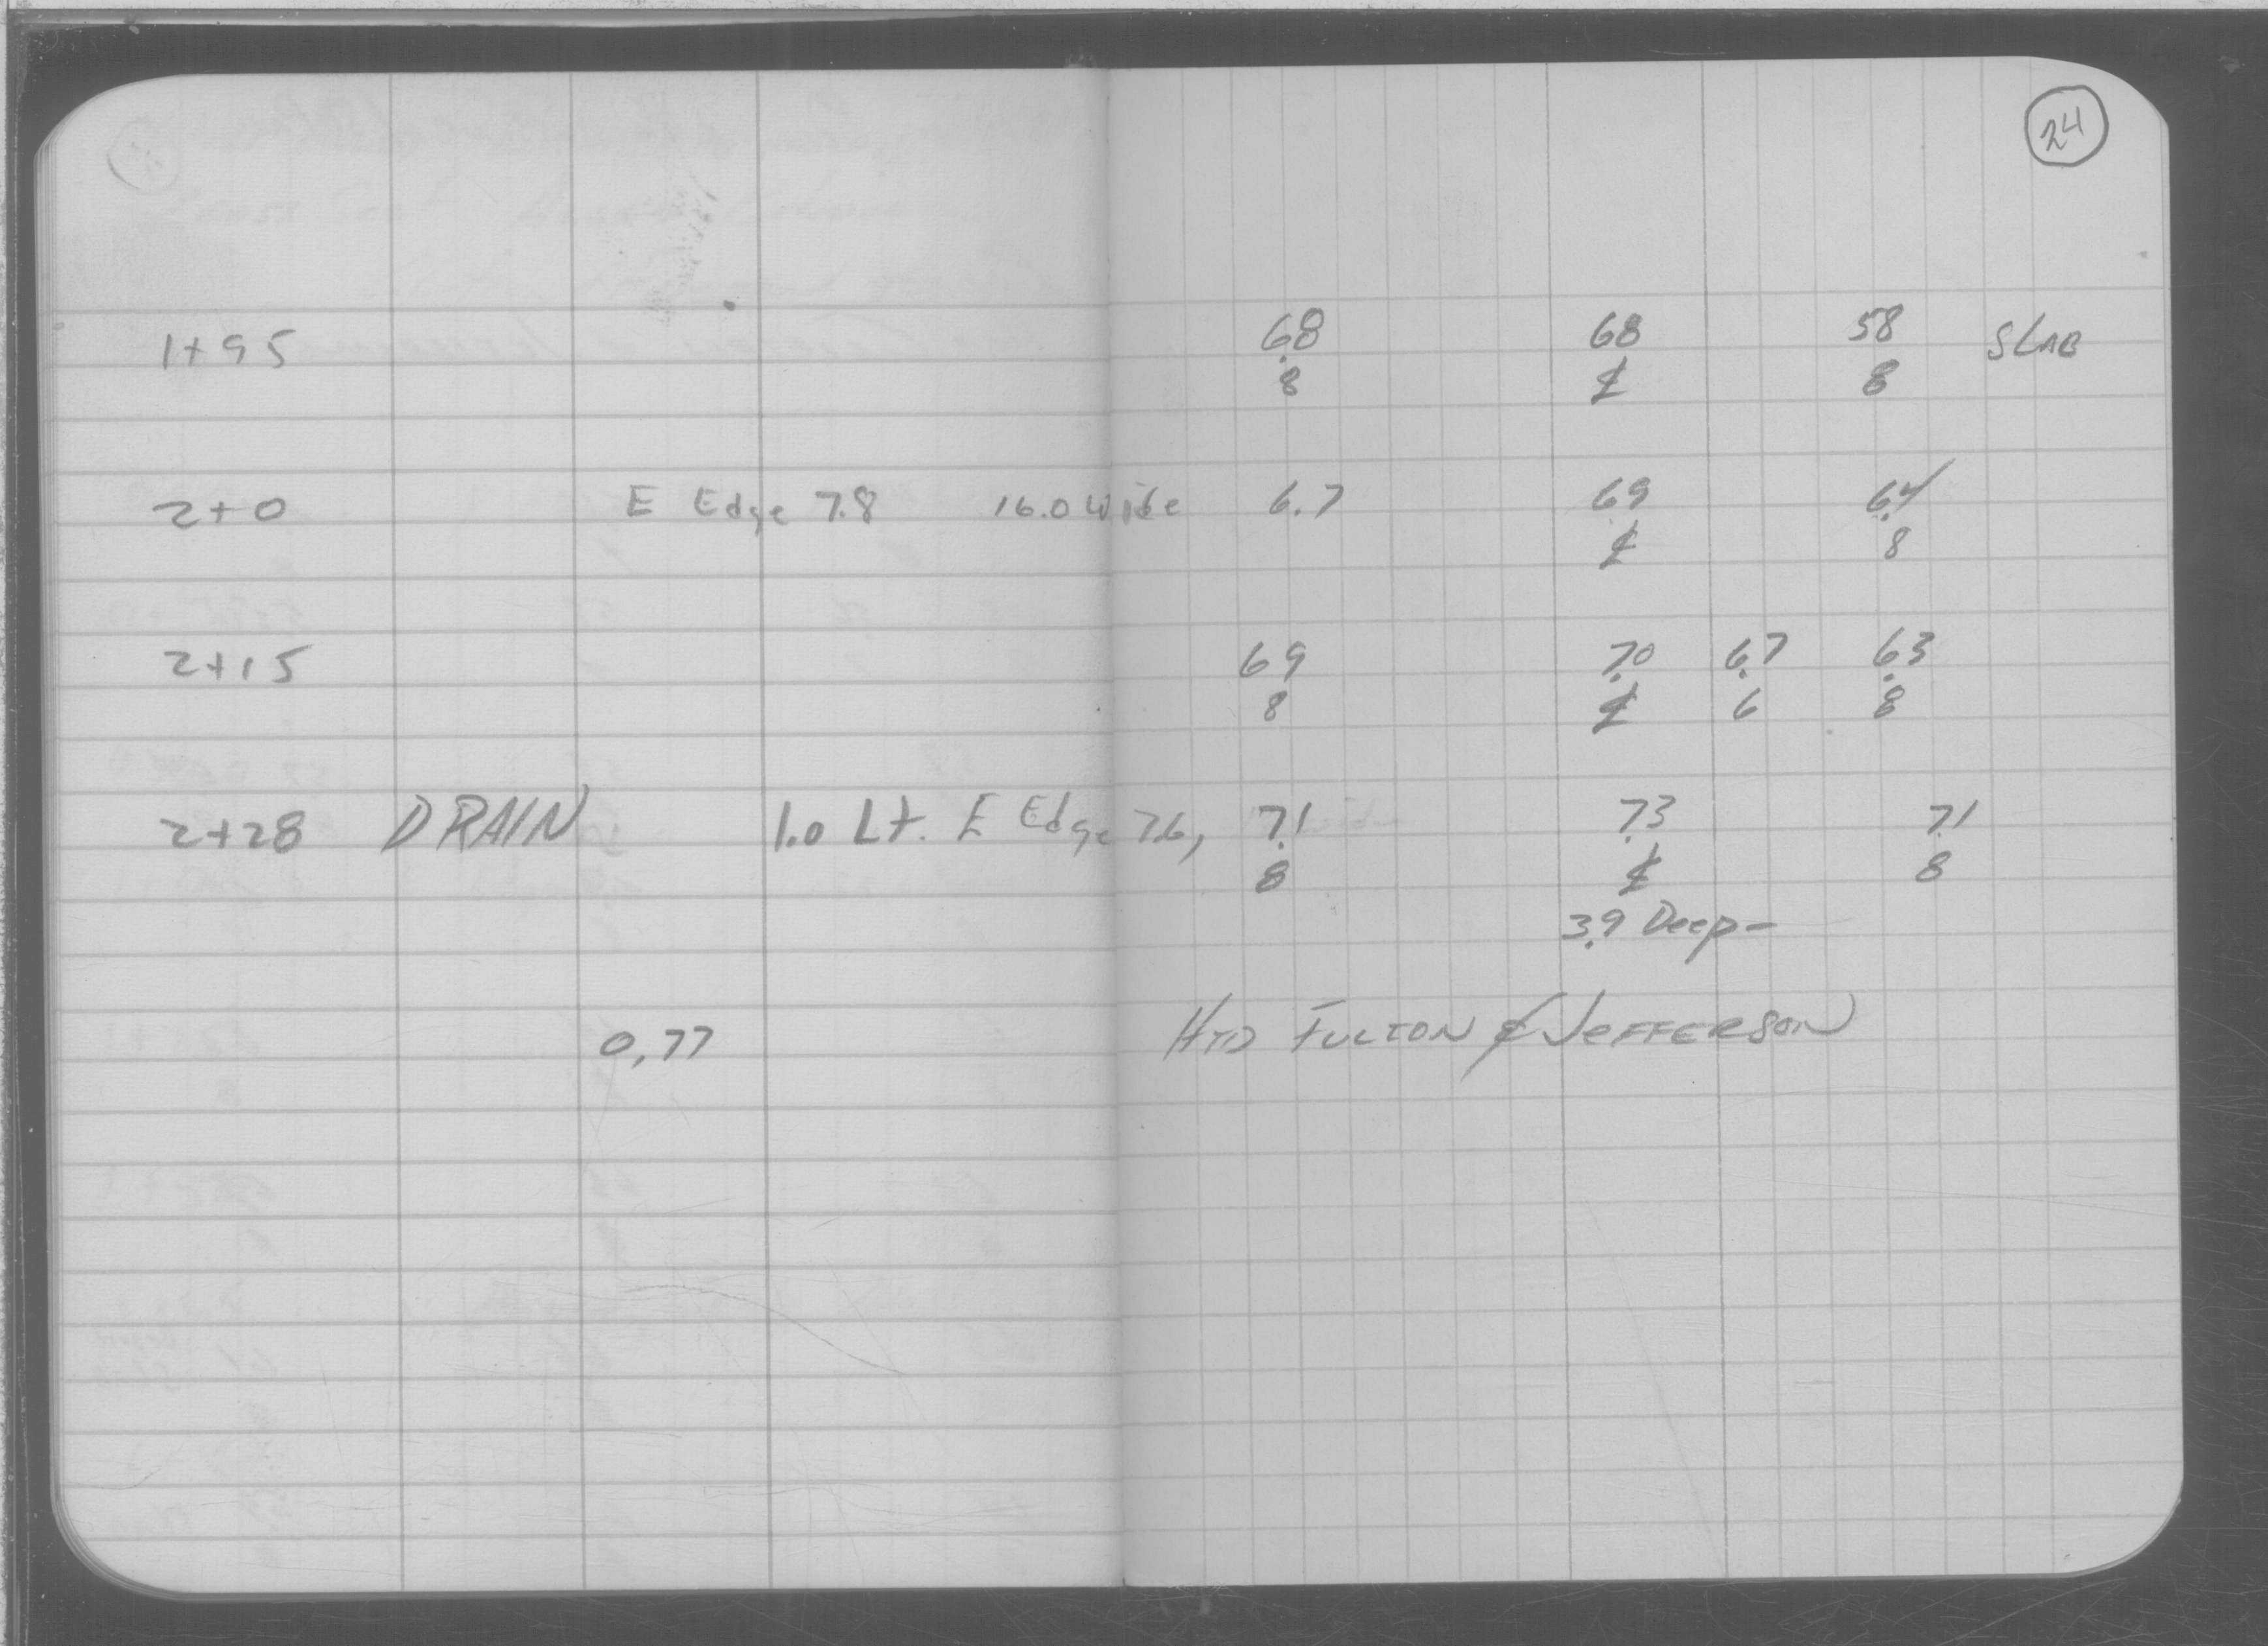 24
1+95 6.8 68 58 SLAB
8 ℄ 8
2+0 E Edge 7.8 16.0 Wide 6.7 69 6.4
℄ 8
2+15 69 7.0 6.7 6.3
8 ℄ 6 8
2+28 DRAIN 1.0 Lt. E Edge 7.6, 7.1 7.3 7.1
8 ℄ 8
3.9 Deep-
0.77 HYD FULTON & JEFFERSON